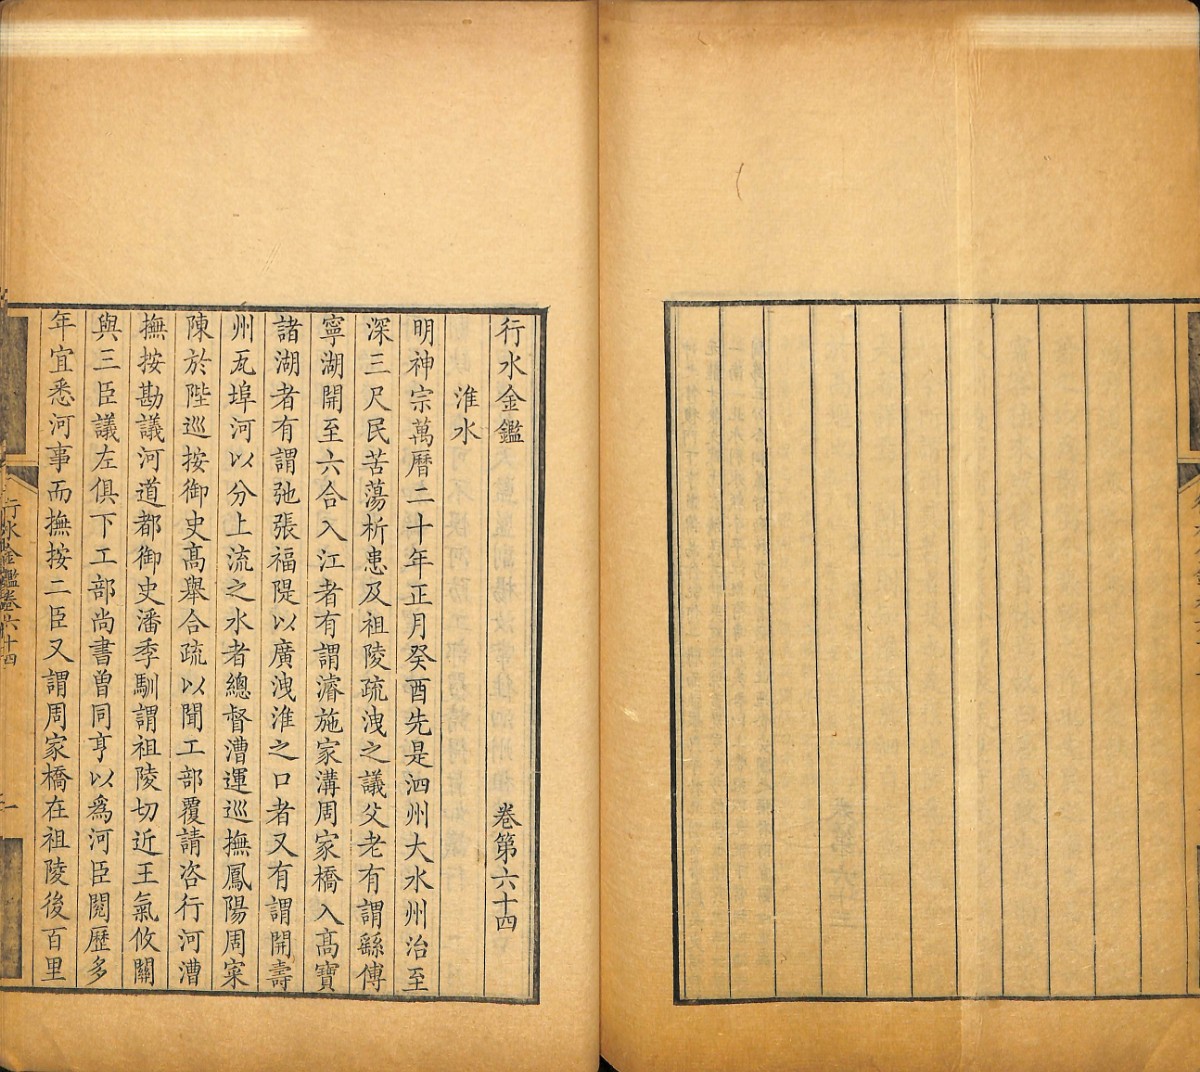 行水金鑑 卷第六十四
淮水
明神宗萬曆二十年正月癸酉先是泗州大水州治至
深三尺民苦蕩析患及祖陵疏洩之議父老有謂繇傅
寧湖開至六合入江者有謂濬施家溝周家橋入高寶
諸湖者有謂弛張福隄以廣洩淮之口者又有謂開壽
州瓦埠河以分上流之水者總督漕運巡撫鳳陽周寀
陳於陛巡按御史高舉合疏以聞工部覆請咨行河漕
撫按勘議河道都御史潘季馴謂祖陵切近王氣攸關
與三臣議左俱下工部尚書曾同亨以爲河臣閱歷多
年宜悉河事而撫按二臣又謂周家橋在祖陵後百里
行水金鑑卷六十四
一